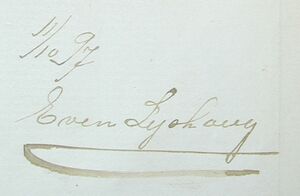 11/10 97
Even Lyshoug